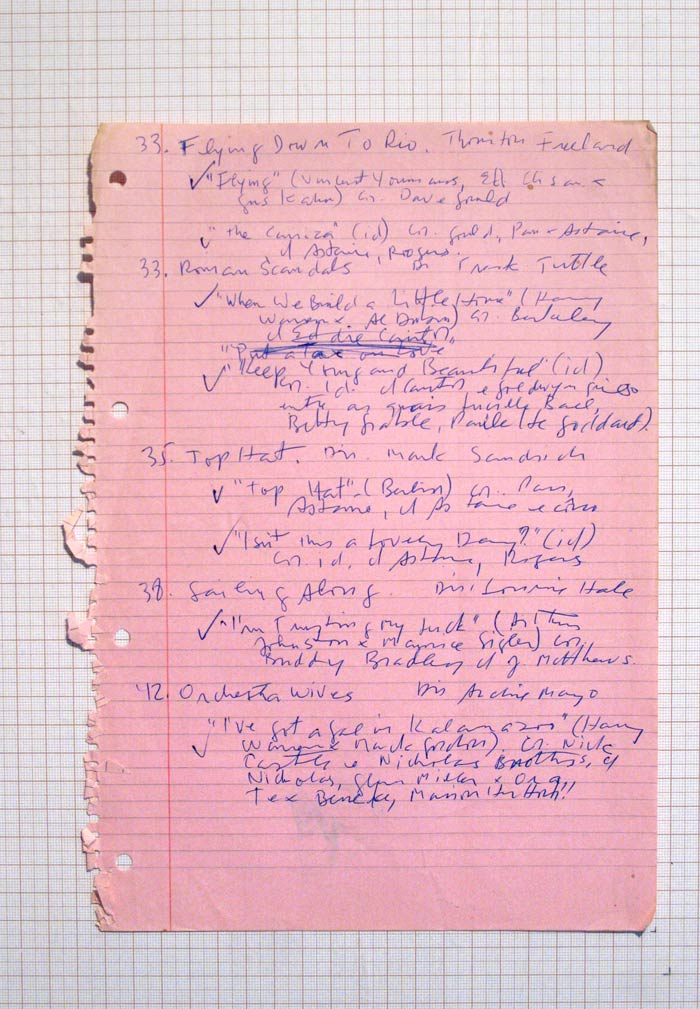 33. Flying Down To Rio. Thornton Freeland
"Flying" (Vincent Youmans, Ed Eliscu x
Gus Kahn) Cr. Dave Gould
"the Carioca" (id) Cr. Gould, Pan x Astaire,
d Astaire, Rogers.
33. Roman Scandals Dir Frank Tuttle
"When We Build a Little Home" (Harry
Warren x Al Dubin) Cr. Berkeley
d Eddie Cantor
"Put a Tax on Love"
"Keep Young and Beautiful" (id)
Cr. Id. d Cantor e goldwyn girls
entre as quais Lucille Ball,
Betty Grable, Paulette Goddard).
35. Top Hat. Dir. Mark Sandrich
"Top Hat" (Berlin) Cr. Pan,
Astaire, d Astaire e coro
"Isn't this a Lovely Day?" (id)
Cr. id. d Astaire, Rogers
38. Sailing Along. Dir. Sonnie Hale
"I'm Trusting My Luck" (Arthur
Johnston x Maurice Sigler) Cr.
Buddy Bradley d J. Matthews.
42. Orchestra Wives Dir Archie Mayo
"I've got a gal in Kalamazoo" (Harry
Warren x Mack Gordon). Cr. Nick
Castle e Nicholas Brothers, d
Nicholas, Glenn Miller x Orq
Tex Beneke, Marion Hutton!!